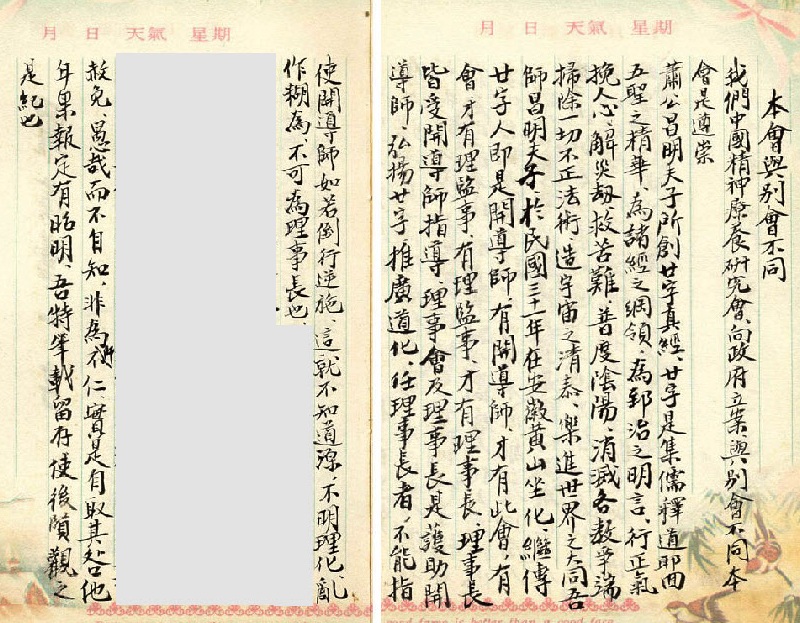 月 日 天氣 星期
本會與別會不同
我們中國精神療養研究會、向政府立案、與別會不同本
會是遵崇
蕭公昌明夫子所創廿字真經、廿字是集儒釋道耶回
五聖之精華、為諸經之綱領、為郅治之明言、行正氣
挽人心、解災劫救苦難、普度陰陽、消滅各教爭端
掃除一切不正法術、造宇宙之清泰、樂進世界之大同吾
師昌明夫子於民國三十一年在安徽黃山坐化、繼傳
廿字人即是開導師、有開導師、才有此會、有
會才有理監事、有理監事、才有理事長、理事長
皆受開導師指導、理事會及理事長是護助開
導師、弘揚廿字推廣道化、任理事長者、不能指
good fame is better than a good face
月 日 天氣 星期
使開導師如若倒行逆施、這就不知道源、不明理化、亂
作糊為、不可為理事長也、
赦免、愚哉而不自知、非為不仁、實是自取其咎他
年果報定有昭明、吾特筆載留存使後賢觀之
是紀也